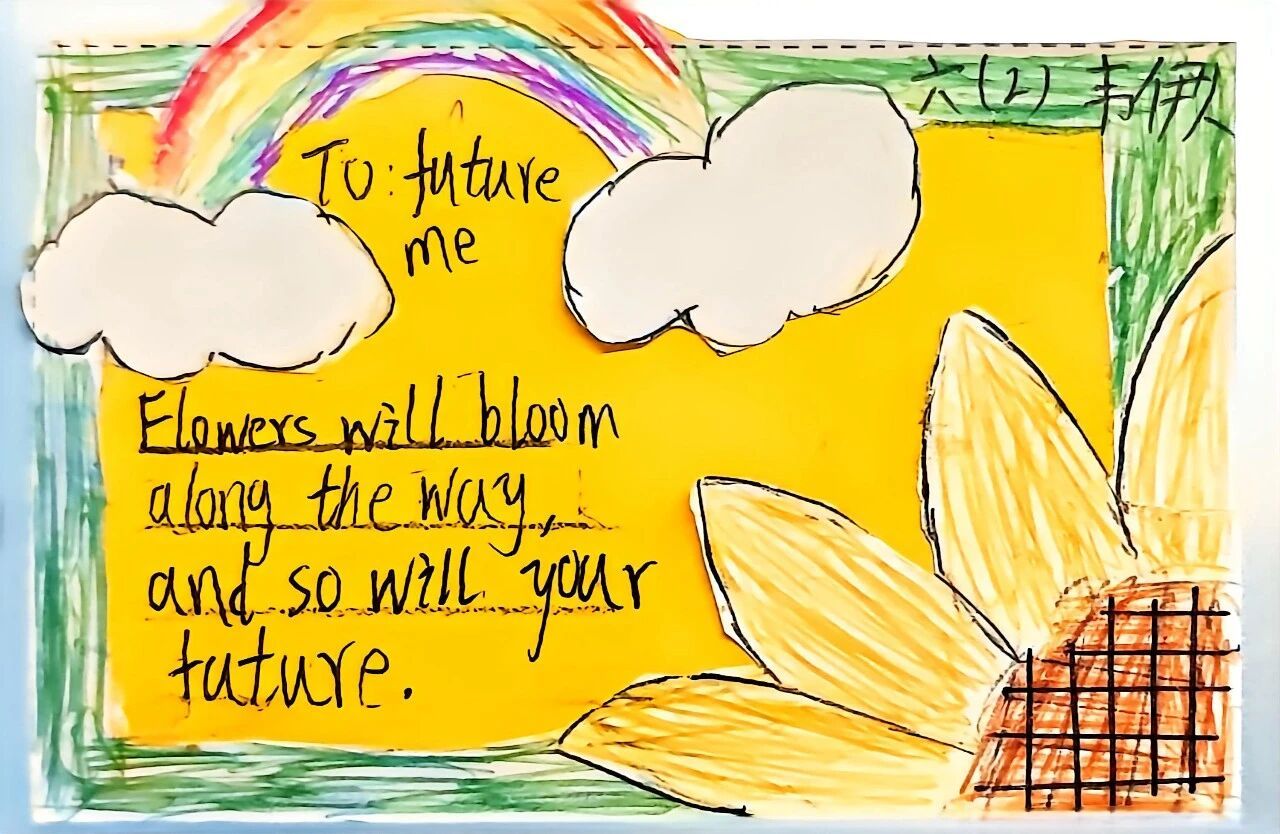 六(2) 韦伊人
To: future
me
Flowers will bloom
along the way,
and so will your
future.